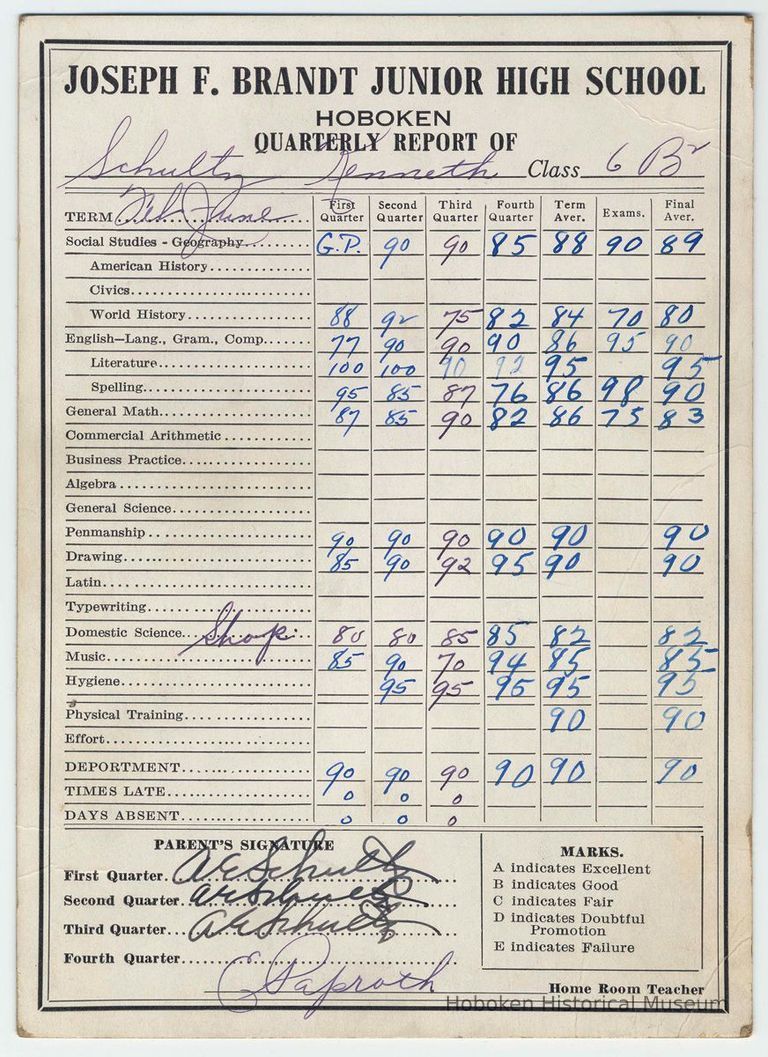 JOSEPH F. BRANDT JUNIOR HIGH SCHOOL
HOBOKEN
QUARTERLY REPORT OF
Schultz Kenneth Class 6 B²
TERM Feb June First Quarter Second Quarter Third Quarter Fourth Quarter Term Aver. Exams. Final Aver.
Social Studies - Geography G.P. 90 90 85 88 90 89
American History
Civics
World History 88 92 75 82 84 70 80
English—Lang., Gram., Comp. 77 90 90 90 86 95 90
Literature 100 100 90 92 95 95
Spelling 95 85 87 76 86 98 90
General Math. 87 85 90 82 86 75 83
Commercial Arithmetic
Business Practice
Algebra
General Science
Penmanship 90 90 90 90 90 90
Drawing 85 90 92 95 90 90
Latin
Typewriting
Domestic Science Shop 80 80 85 85 82 82
Music 85 90 70 94 85 85
Hygiene 95 95 95 95 95
Physical Training 90 90
Effort
DEPORTMENT 90 90 90 90 90 90
TIMES LATE 0 0 0
DAYS ABSENT 0 0 0
PARENT'S SIGNATURE
First Quarter A E Schultz
Second Quarter
Third Quarter A E Schultz
Fourth Quarter
Paproth
MARKS.
A indicates Excellent
B indicates Good
C indicates Fair
D indicates Doubtful
Promotion
E indicates Failure
Home Room Teacher
Hoboken Historical Museum